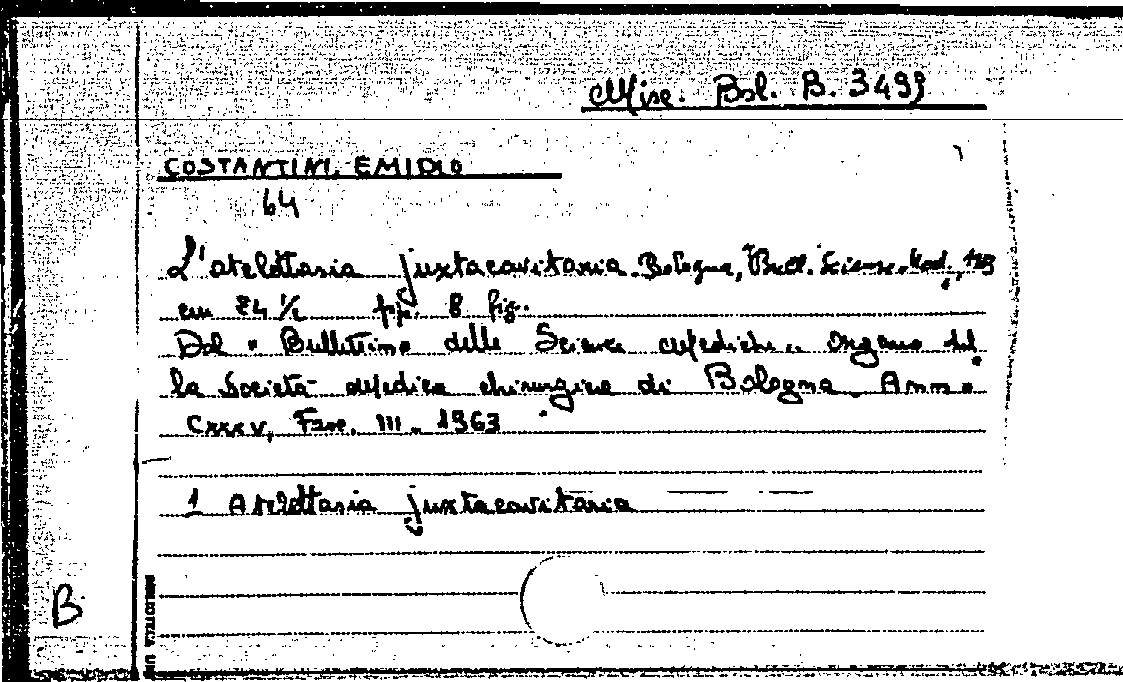 Misc. Bol. B. 3499
COSTANTINI, EMIDIO
64
L'atelettasia juxtacavitaria. Bologna, Bull. Scienze Med.,
cm 24 1/2 pp. 8 fig.
Dal " Bullettino delle Scienze Mediche.. Organo del
la Società Medica chirurgica di Bologna. Anno
CXXXV, Fasc. III. 1963
1 Atelettasia juxtacavitaria
B
BIBLIOTECA